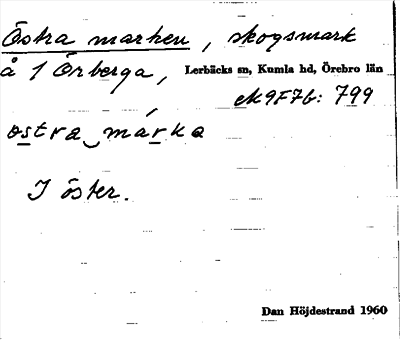 Östra marken, skogsmark
å 1 Örberga, Lerbäcks sn, Kumla hd, Örebro län
ek9F7b: 799
ostra márka
I öster.
Dan Höjdestrand 1960